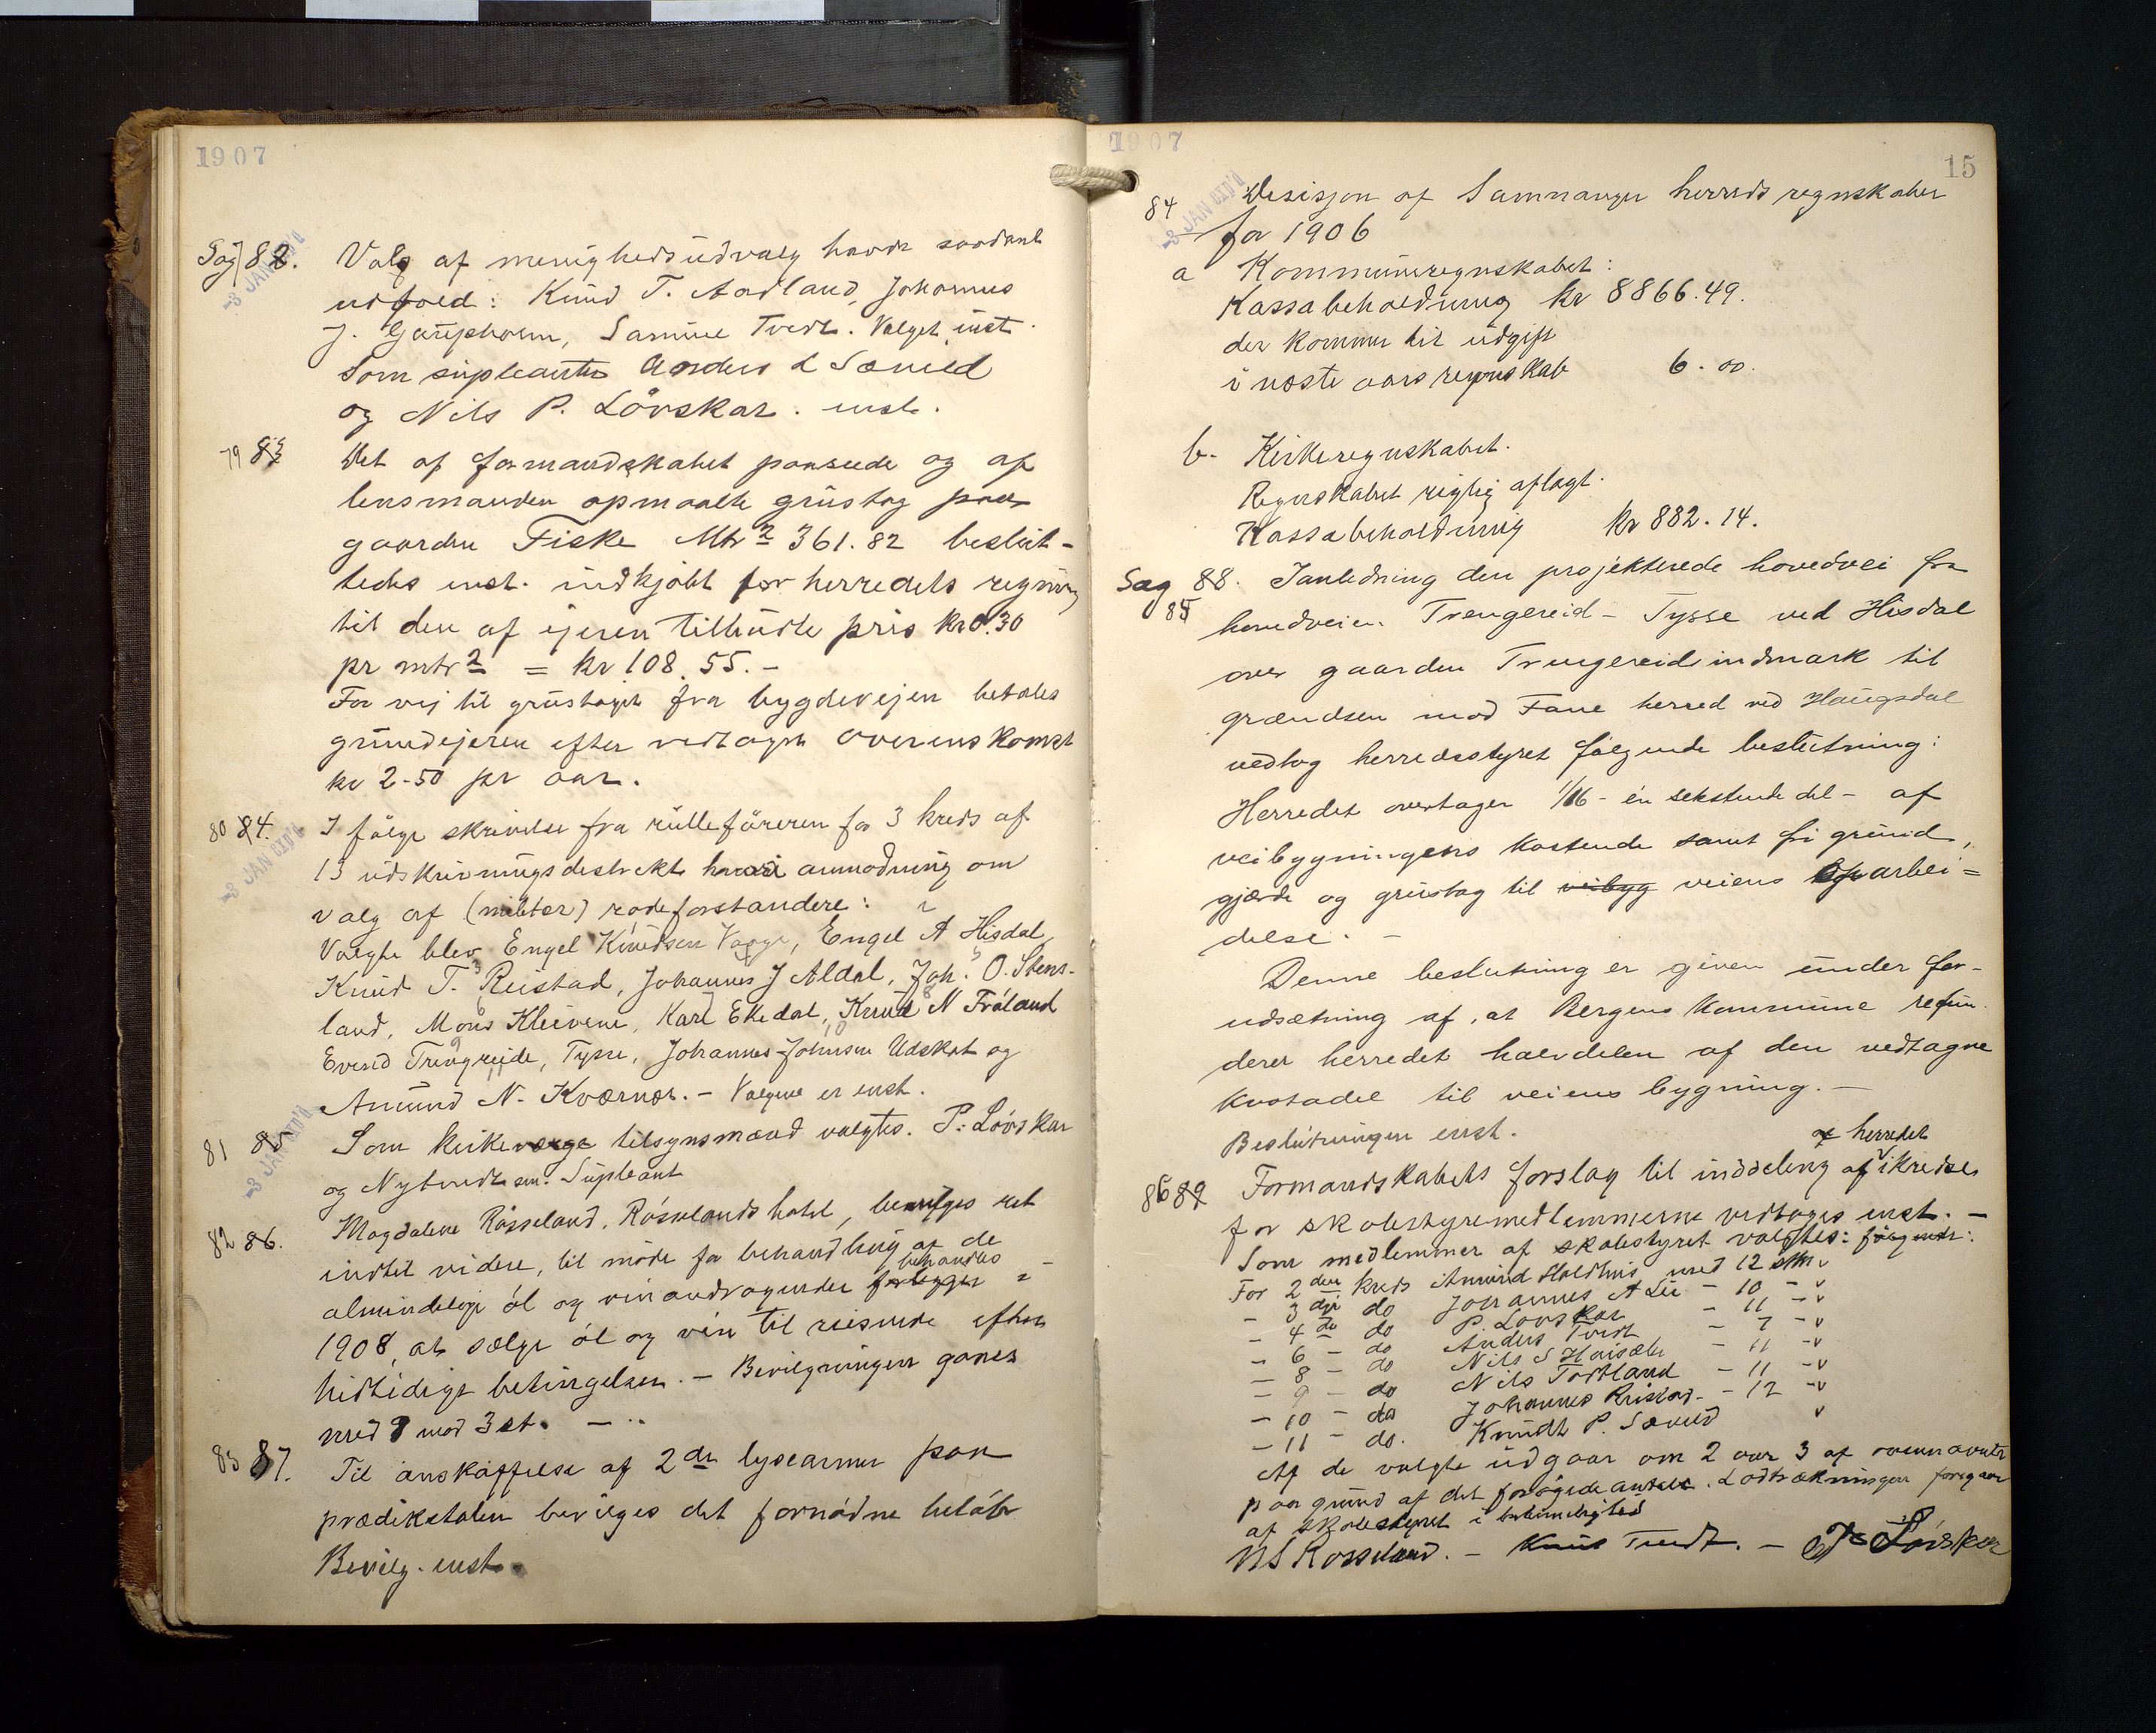 1907
Sag 82. Valg af menighedsudvalg havde saadant
udfald: Knud T. Aadland, Johannes
J. Gaupholm, Samuel Tvedt. Valget enst.
Som supleanter Anders L Sæveld
og Nils P. Lövskar. enst.
79 83 Det af formandskabet pønsede og af
lensmanden opmaalte grustag paa
gaarden Fiske Mtr2 361.82 beslut-
tedes enst. indkjøbt for herredets regning
til den af ejeren tilbudte pris kr 0.30
pr mtr2 = kr 108.55.-
For vej til grustaget fra bygdevejen betales
grundejeren efter vedtagen overenskomst
kr 2-50 pr aar.
80 84. I følge skrivelse fra rulleföreren for 3 kreds af
13 udskrivningsdestrekt havdes anmodning om
valg af (militær) rodeforstandere:
Valgte blev Engel Knudsen Vaage, Engel A Hisdal,
Knud T. Reistad, Johannes J Aldal, Joh. O. Stens-
land, Mons Kleivene, Karl Ekedal, Knud N Fröland
Evind Trengreide, Tysse, Johannes Johnsen Udskot og
Amund N. Kværnæs. - Valgene er enst.
81 85 Som kirkeværge tilsynsmænd valgtes. P. Lövskar
og Ny Tvedt sm. Supleant
82 86. Magdalene Rösseland, Rösselands hotel, bevilges ret
indtil videre, til møde for behandling af de
almindelige øl og vinandragender behandles i
1908, at sælge øl og vin til reisende efter
hidtidige betingelser. - Bevilgningen gaves
med 9 mod 3 st. -
83 87. Til anskaffelse af 2de lysearmer paa
prædikstolen bevilges det fornødne beløb
Bevilg. enst.
1907
15
84 Desisjon af Samnanger herreds regnskaber
for 1906
a Kommuneregnskabet:
Kassabeholdning kr 8866.49.
der kommer til udgift
i næste aars regnskab 6.00.
b. Kirkeregnskabet.
Regnskabet rigtig aflagt.
Kassabeholdning kr 882.14.
Sag 88. Ianledning den projekterede hovedvei fra
85 hovedveien Trengereid - Tysse ved Hisdal
over gaarden Trengereids indmark til
grændsen mod Fane herred ved Haugsdal
vedtog herredsstyret følgende beslutning:
Herredet overtager 1/16 - én sekstende del - af
veibygningens kostende samt fri grund,
gjærde og grustag til veibyg veiens oparbei=
delse. -
Denne beslutning er given under for-
udsætning af, at Bergens Kommune refun-
derer herredet halvdelen af den vedtagne
kostadel til veiens bygning. -
Beslutningen enst.
af herredet
86 89 Formandskabets forslag til inddeling af i kredse
for skolestyremedlemmerne vedtoges enst. -
Som medlemmer af skolestyret valgtes: følgende:
For 2den kreds Amund Haldhus med 12 stm. v
- 3dje do Johannes A Lie - 10 - v
- 4de do P. Lövskar - 11 - v
- 6 - do Anders Tvedt - 7 - v
- 8 - do Nils S Høisæter - 11 - v
- 9 - do Nils Tordland - 11 - v
- 10 - do Johannes Reistad - 12 - v
- 11 - do. Knudt P. Sæveld v
Af de valgte udgaar om 2 aar 3 af ovennævnte
paa grund af det forøgede antal. Lodtrækningen foregaar
af skolestyret i betimelighed
NS Rosseland. - Knut Tvedt. - P Lövskar